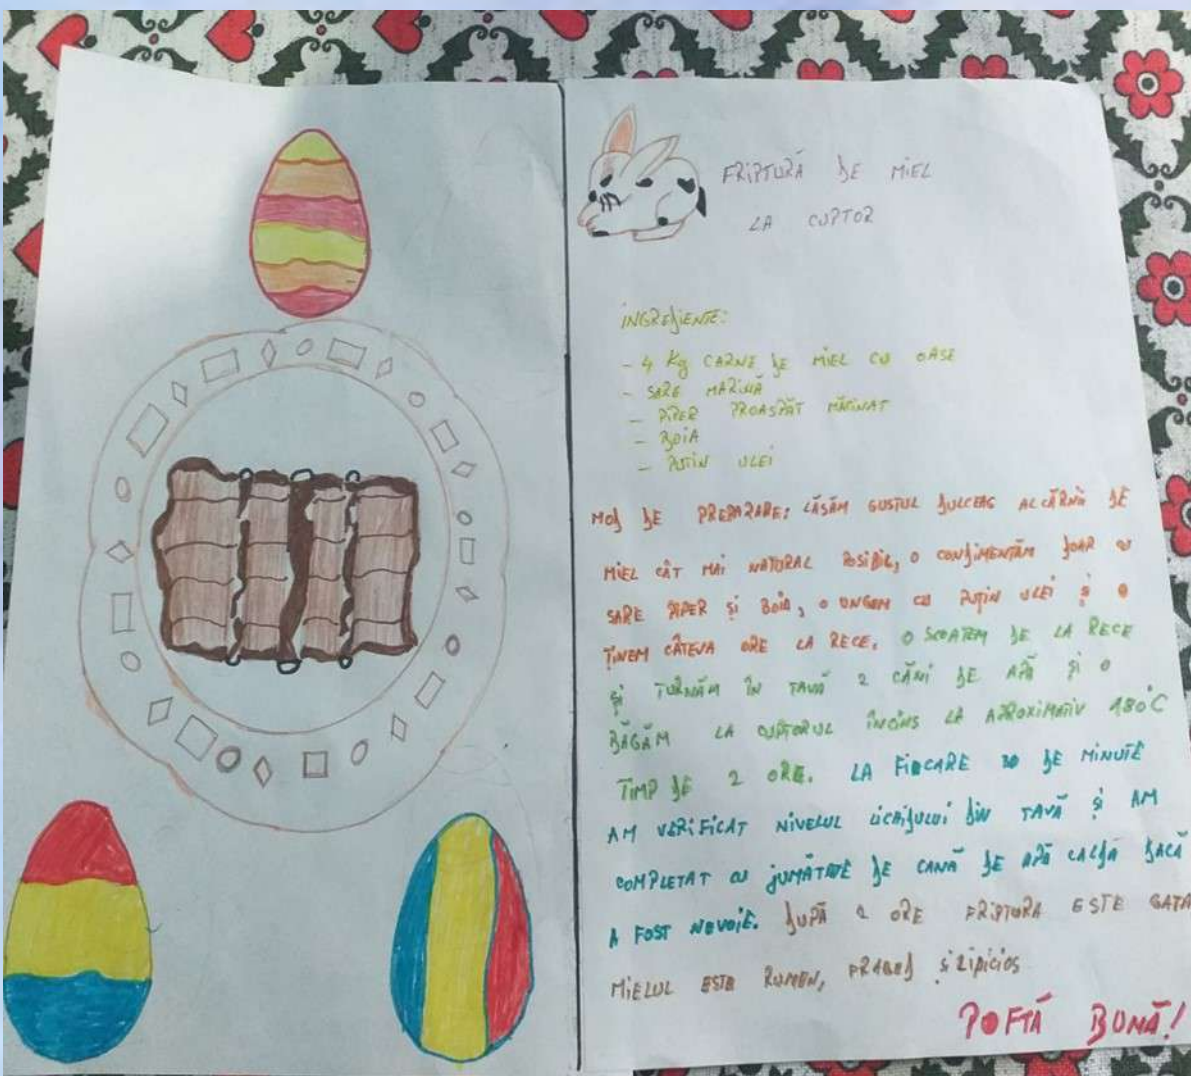 FRIPTURĂ DE MIEL
LA CUPTOR
INGREDIENTE:
- 4 Kg CARNE DE MIEL CU OASE
- SARE MARINĂ
- PIPER PROASPĂT MĂCINAT
- BOIA
- PUȚIN ULEI
MOD DE PREPARARE: LĂSĂM GUSTUL DULCEAG AL CĂRNII DE
MIEL CÂT MAI NATURAL POSIBIL, O CONDIMENTĂM DOAR CU
SARE PIPER ȘI BOIA, O UNGEM CU PUȚIN ULEI ȘI O
ȚINEM CÂTEVA ORE LA RECE. O SCOATEM DE LA RECE
ȘI TURNĂM ÎN TAVĂ 2 CĂNI DE APĂ ȘI O
BĂGĂM LA CUPTORUL ÎNCINS LA APROXIMATIV 180°C
TIMP DE 2 ORE. LA FIECARE 30 DE MINUTE
AM VERIFICAT NIVELUL LICHIDULUI DIN TAVĂ ȘI AM
COMPLETAT CU JUMĂTATE DE CANĂ DE APĂ CALDĂ DACĂ
A FOST NEVOIE. DUPĂ 2 ORE FRIPTURA ESTE GATA
MIELUL ESTE RUMEN, FRAGED ȘI LIPICIOS
POFTĂ BUNĂ!